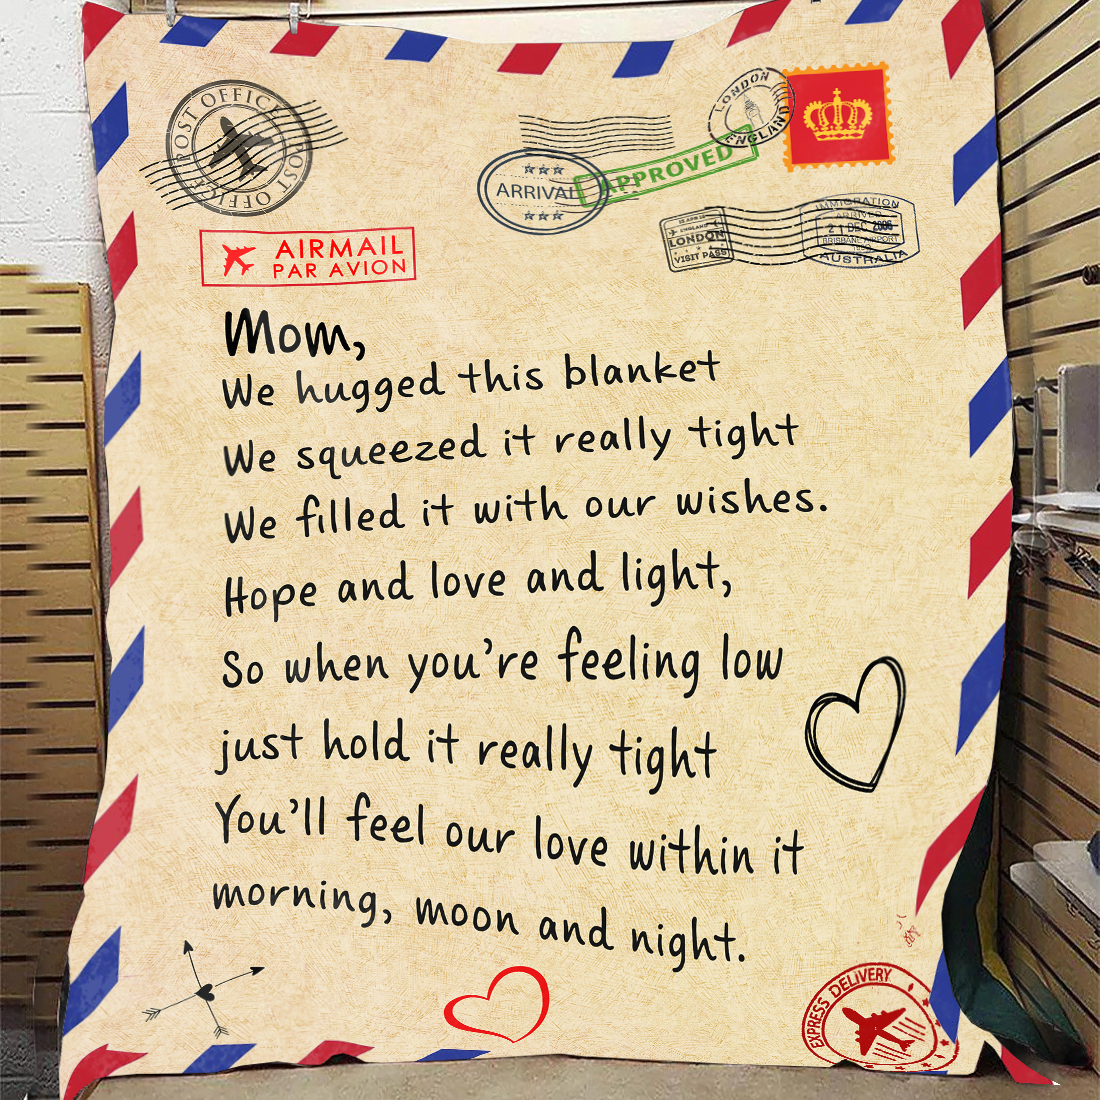 POST OFFICE
POST OFFICE
LONDON
ENGLAND
ARRIVAL
APPROVED
ENGLAND
LONDON
VISIT PASS
IMMIGRATION
ARRIVED
21 DEC 2006
BRISBANE AIRPORT
AUSTRALIA
AIRMAIL
PAR AVION
Mom,
We hugged this blanket
We squeezed it really tight
We filled it with our wishes.
Hope and love and light,
So when you're feeling low
just hold it really tight
You'll feel our love within it
morning, moon and night.
EXPRESS DELIVERY